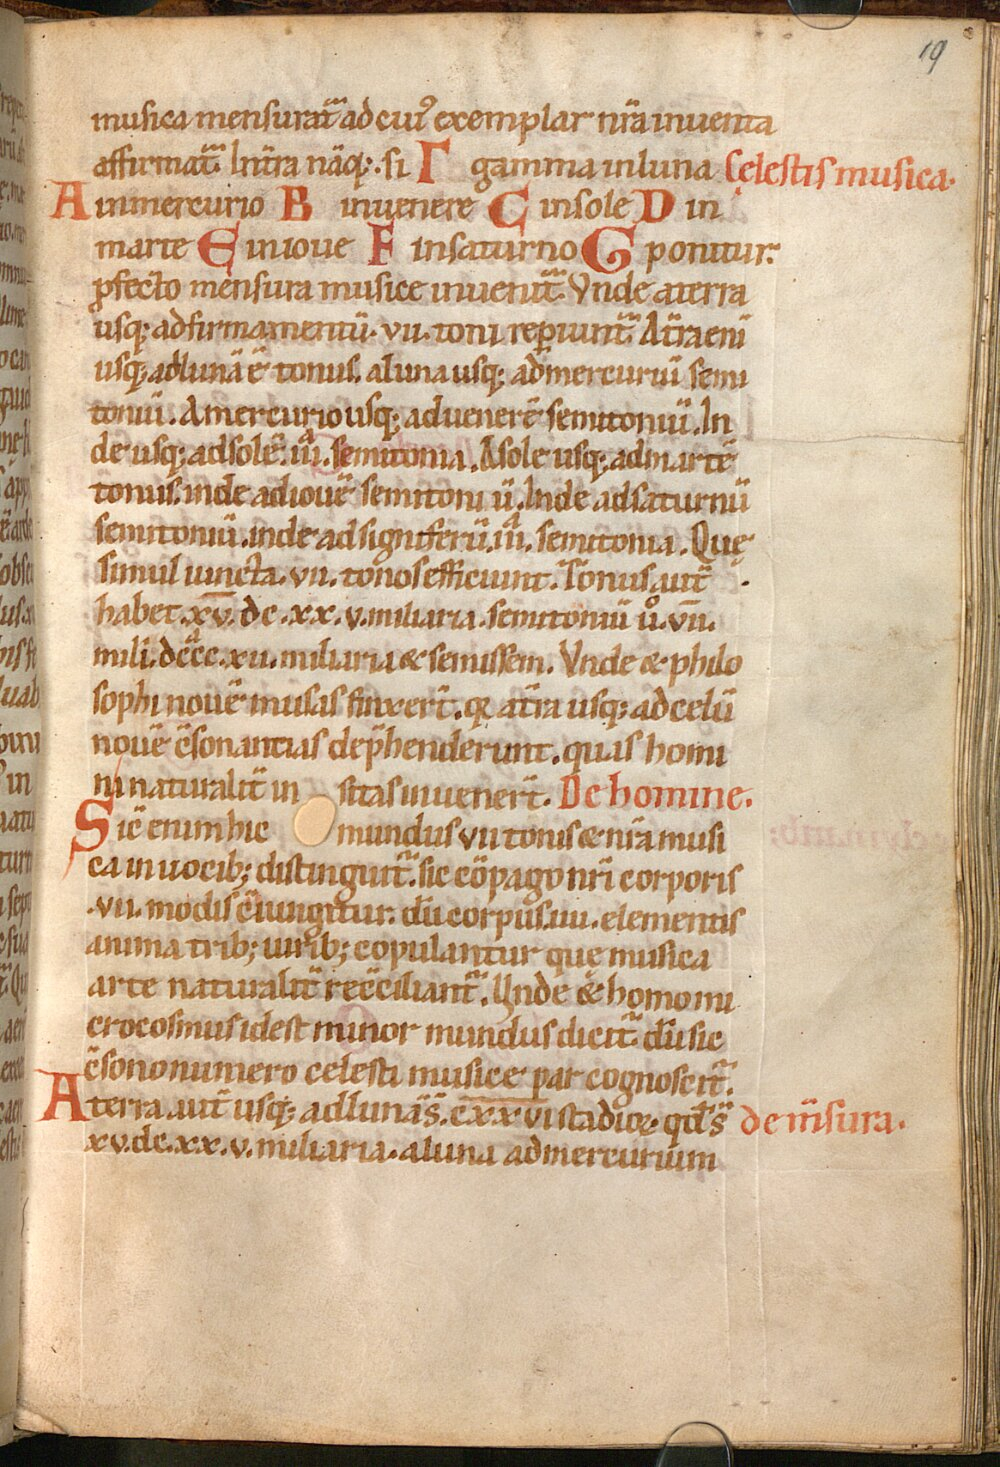 19
musica mensurat᷑ ad cuiꝰ exemplar nr̄a inuenta
affirmat᷑. In t̄ra nāq;. si Γ gamma in luna Celestis musica.
A in mercurio B in uenere C in sole D in
marte E in ioue F in saturno G ponitur.
ꝓfecto mensura musice inuenit᷑. Vnde a terra
usq; ad firmamentū. vii. toni reperiunt᷑. A t̄ra eni̅
usq; ad lunā ē tonus. a luna usq; ad mercuriū semi
toniū. A mercurio usq; ad uenerē semitoniū. In
de usq; ad solē. iii. semitonia. A sole usq; ad martē
tonus. inde ad iouē semitoniū. Inde ad saturnū
semitoniū. inde ad signiferū. iii. semitonia. Quę
simul iuncta. vii. tonos efficiunt. Tonus aut̄
habet. x̅v̅. dc. xx. v. miliaria. semitoniū ů. v̅i̅i̅.
mili. dccc. xii. miliaria & semissem. Vnde & philo
sophi nouē musas finxer̄t. qꝛ a t̄ra usq; ad celū
nouē c̄sonantias dep̄henderunt. quas homi
ni naturalit̄ in sitas inuener̄t. De homine.
Sic̄ enim hic mundus vii tonis & nr̄a musi
ca in uocib; distinguit᷑. sic cōpago nr̄i corporis
.vii. modis c̄iungitur. dū corpus. iiii. elementis
anima trib; uirib; copulantur que musica
arte naturalit̄ rec̄ciliant᷑. Vnde & homo mi
crocosmus idest minor mundus dicit᷑. dū sic
c̄sono numero celesti musice par cognoscit᷑.
A terra aut̄ usq; ad lunā s̄. c̅x̅x̅v̅i̅ stadioꝝ. qd̄ s̄ de m̄sura.
xv. dc. xx. v. miliaria. a luna ad mercurium